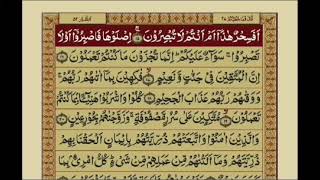 اَفَسِحْرٌ هٰذَاۤ اَمْ اَنْتُمْ لَا تُبْصِرُوْنَ ﴿١٥﴾ اِصْلَوْهَا فَاصْبِرُوْۤا اَوْ لَا
تَصْبِرُوْا ۚ سَوَآءٌ عَلَيْكُمْ ؕ اِنَّمَا تُجْزَوْنَ مَا كُنْتُمْ تَعْمَلُوْنَ ﴿١٦﴾
اِنَّ الْمُتَّقِيْنَ فِيْ جَنّٰتٍ وَّنَعِيْمٍ ﴿١٧﴾ فٰكِهِيْنَ بِمَاۤ اٰتٰىهُمْ رَبُّهُمْ ۚ
وَوَقٰىهُمْ رَبُّهُمْ عَذَابَ الْجَحِيْمِ ﴿١٨﴾ كُلُوْا وَاشْرَبُوْا هَنِيْٓـًٔا بِمَا كُنْتُمْ
تَعْمَلُوْنَ ﴿١٩﴾ مُتَّكِـِٕيْنَ عَلٰى سُرُرٍ مَّصْفُوْفَةٍ ۚ وَزَوَّجْنٰهُمْ بِحُوْرٍ عِيْنٍ ﴿٢٠﴾
وَالَّذِيْنَ اٰمَنُوْا وَاتَّبَعَتْهُمْ ذُرِّيَّتُهُمْ بِاِيْمَانٍ اَلْحَقْنَا بِهِمْ
ذُرِّيَّتَهُمْ وَمَاۤ اَلَتْنٰهُمْ مِّنْ عَمَلِهِمْ مِّنْ شَيْءٍ ؕ كُلُّ امْرِئٍ